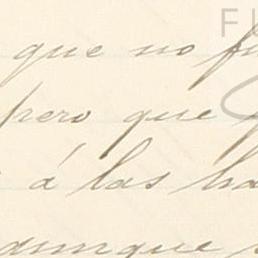 que no
pero que
á las
aunque